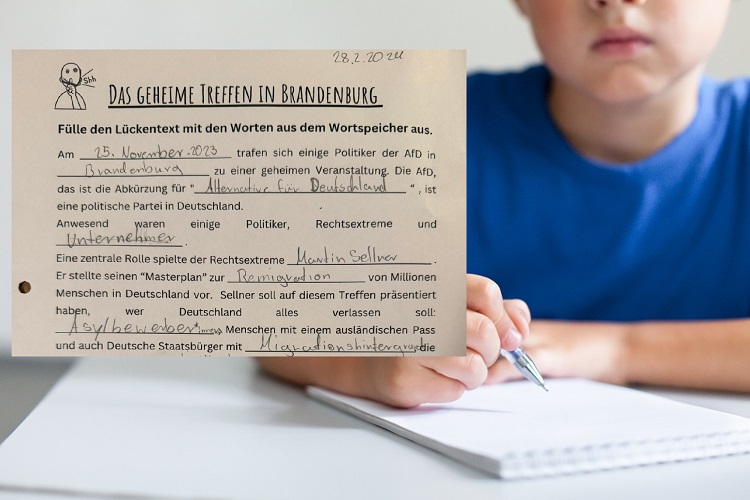 28.2.2024
Shh
DAS GEHEIME TREFFEN IN BRANDENBURG
Fülle den Lückentext mit den Worten aus dem Wortspeicher aus.
Am 25. November 2023 trafen sich einige Politiker der AfD in
Brandenburg zu einer geheimen Veranstaltung. Die AfD,
das ist die Abkürzung für "Alternative für Deutschland", ist
eine politische Partei in Deutschland.
Anwesend waren einige Politiker, Rechtsextreme und
Unternehmer.
Eine zentrale Rolle spielte der Rechtsextreme Martin Sellner.
Er stellte seinen "Masterplan" zur Remigration von Millionen
Menschen in Deutschland vor. Sellner soll auf diesem Treffen präsentiert
haben, wer Deutschland alles verlassen soll:
Asylbewerber*innen, Menschen mit einem ausländischen Pass
und auch Deutsche Staatsbürger mit Migrationshintergrund die